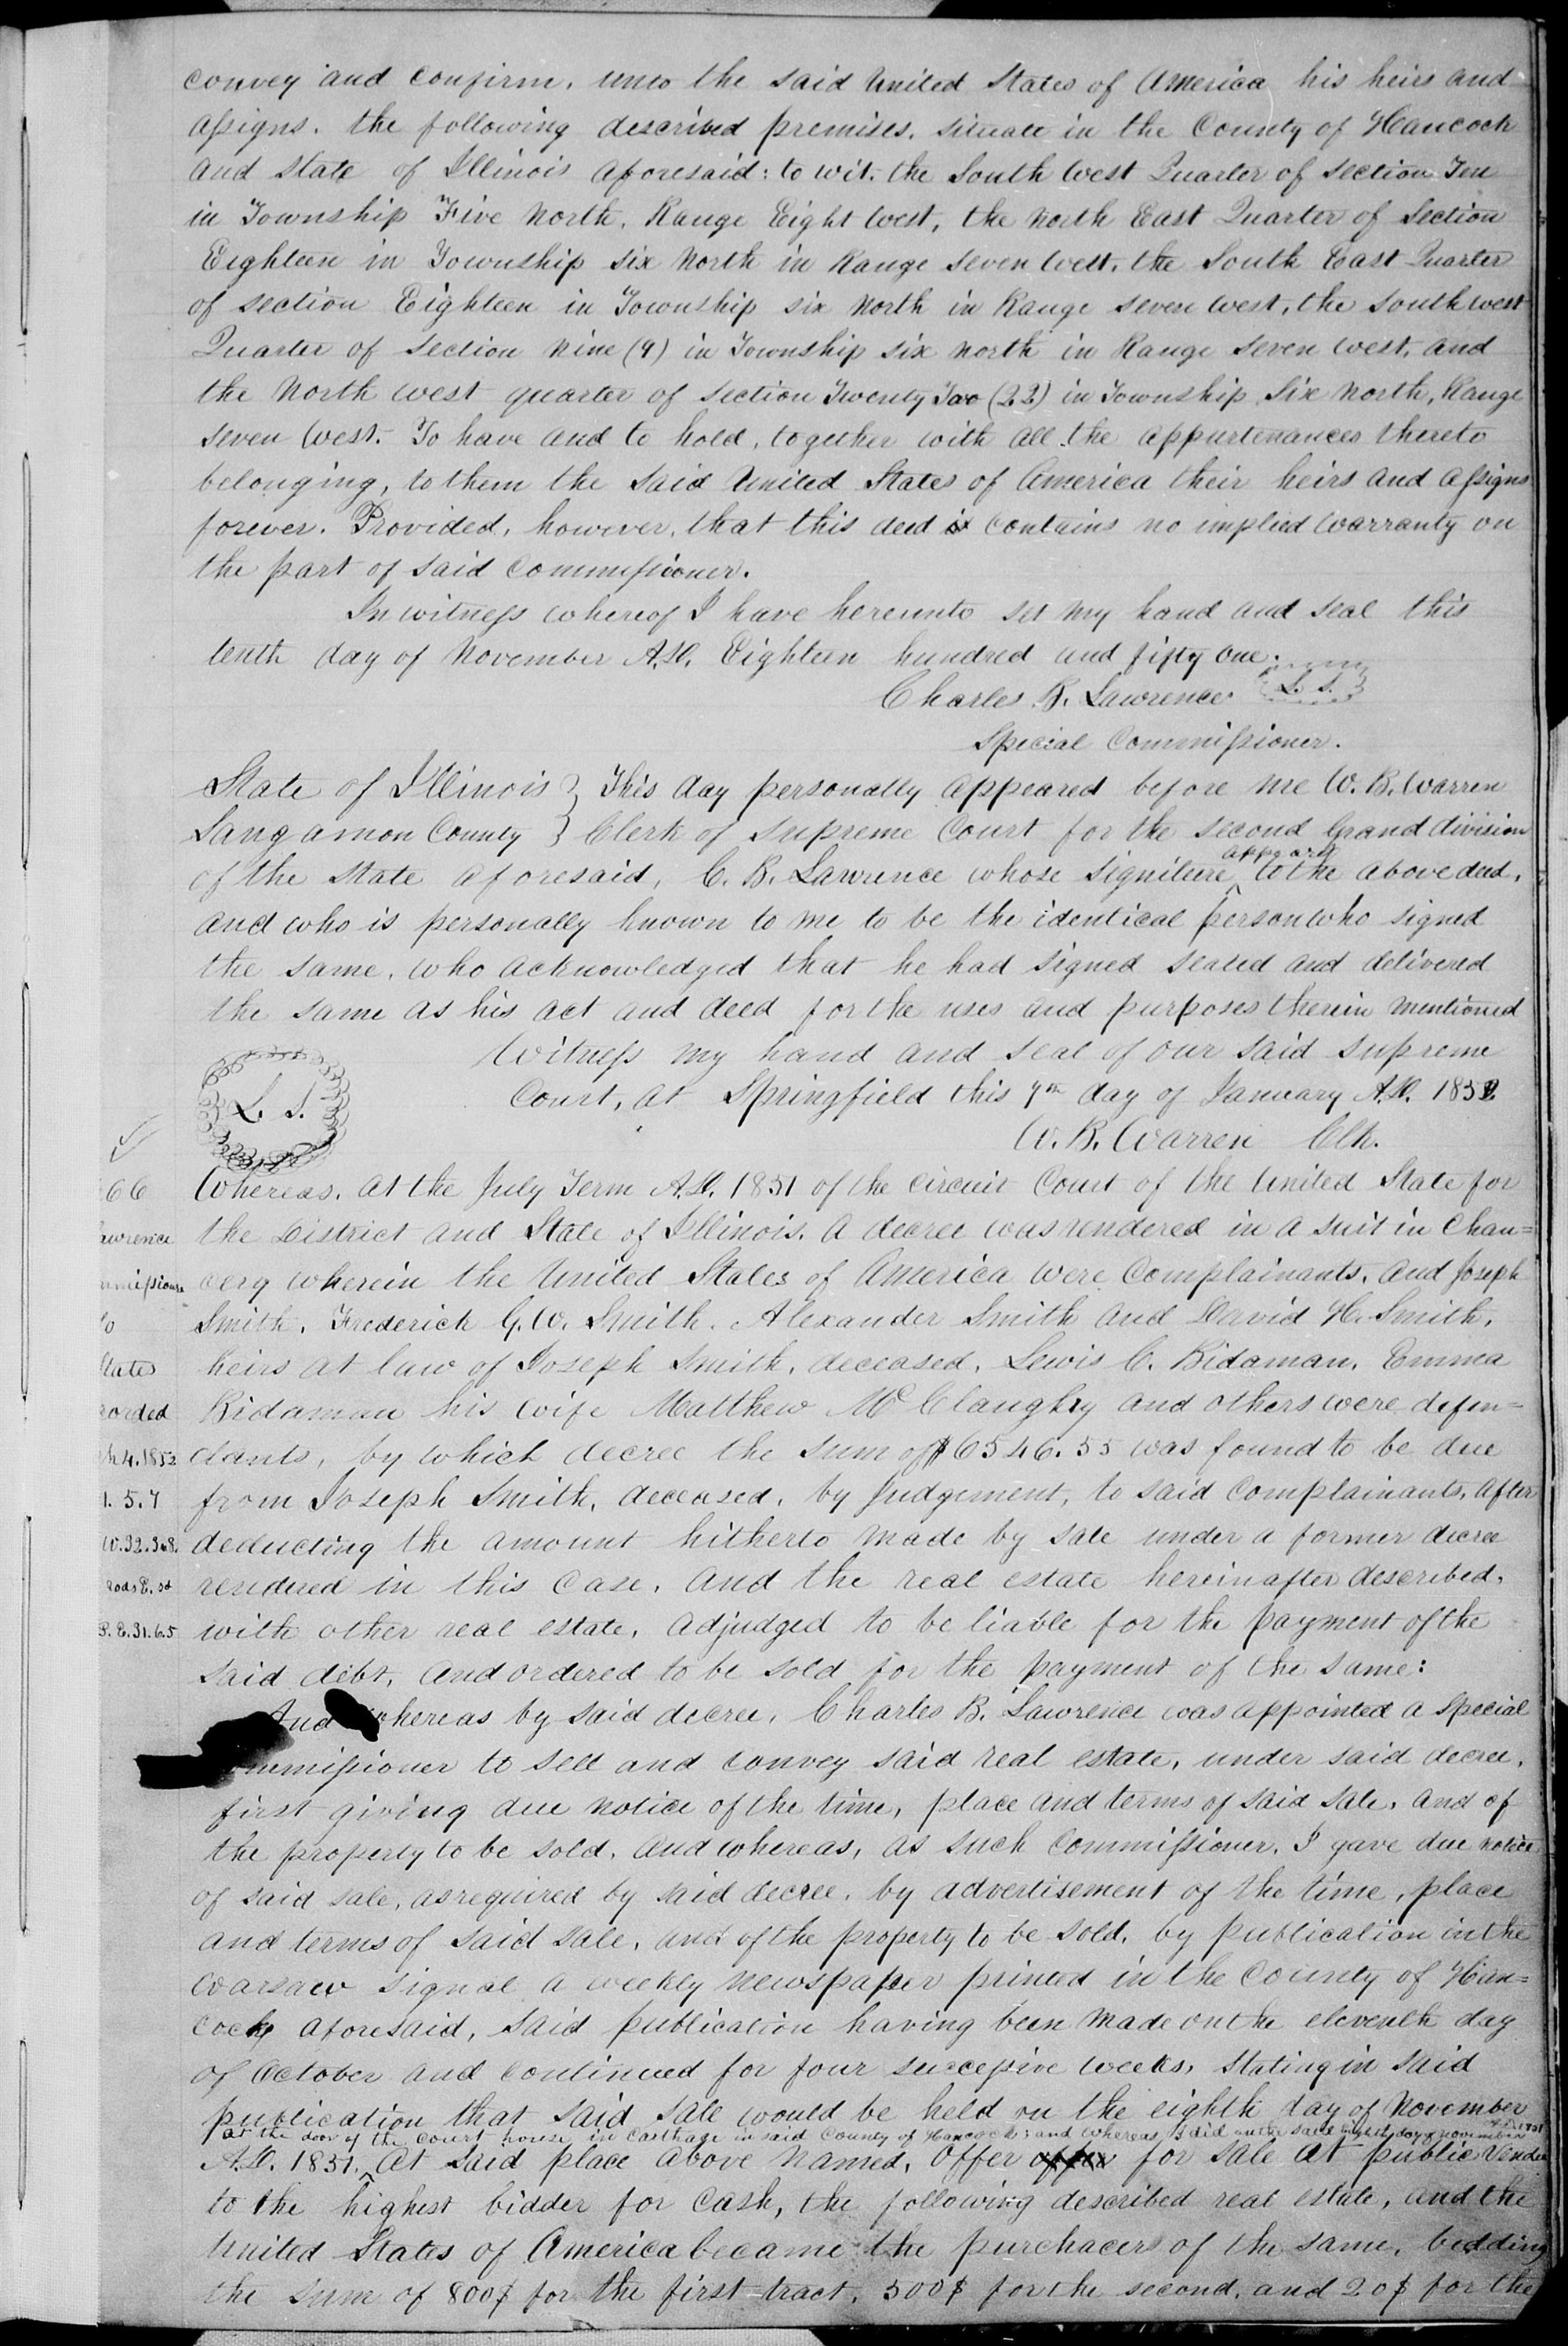 convey and confirm, unto the said United States of America his heirs and
assigns, the following described premises, situate in the County of Hancock
and State of Illinois aforesaid: to wit, the South West Quarter of section Ten
in Township Five North, Range Eight West, the North East Quarter of Section
Eighteen in Township six North in Range seven West, the South East Quarter
of section Eighteen in Township six North in Range seven west, the southwest
Quarter of section Nine (9) in Township six north in Range seven west, and
the North west quarter of section Twenty Two (22) in Township six North, Range
seven West. To have and to hold, together with all the appurtenances thereto
belonging, to them the said United States of America their heirs and assigns
forever. Provided, however, that this deed contains no implied warranty on
the part of said Commissioner.
In witness whereof I have hereunto set my hand and seal this
tenth day of November A.D. Eighteen hundred and fifty one.
Charles B. Lawrence L. S.
Special Commissioner.
State of Illinois } This day personally appeared before me W. B. Warren
Sangamon County } Clerk of Supreme Court for the second Grand division
appears
of the State aforesaid, C. B. Lawrence whose signiture ^ to the above deed,
and who is personally known to me to be the identical person who signed
the same, who acknowledged that he had signed sealed and delivered
the same as his act and deed for the uses and purposes therein mentioned
Witness my hand and seal of our said supreme
L. S.
Court, at Springfield this 7th day of January A.D. 1852
W. B. Warren Clk.
66 Whereas, at the July Term A.D. 1851 of the circuit Court of the United State for
awrence the District and State of Illinois, a decree was rendered in a suit in Chan=
mmissioner cery wherein the United States of America were Complainants, and Joseph
to Smith, Frederick G. W. Smith, Alexander Smith and David H. Smith,
States heirs at law of Joseph Smith, deceased, Lewis C. Bidaman, Emma
corded Bidaman his wife Matthew McClaughry and others were defen=
ch 4. 1852 dants, by which decree the sum of $6546.55 was found to be due
1. 5. 7 from Joseph Smith, deceased, by Judgement, to said Complainants, after
W. 32. 3 & 8. deducting the amount hitherto made by sale under a former decree
rods E. sd rendered in this case, and the real estate hereinafter described,
P. E. 31. 6. 5 with other real estate, adjudged to be liable for the payment of the
said debt, and ordered to be sold for the payment of the same:
And whereas by said decree, Charles B. Lawrence was appointed a special
mmissioner to sell and convey said real estate, under said decree,
first giving due notice of the time, place and terms of said sale, and of
the property to be sold, and whereas, as such Commissioner, I gave due notice
of said sale, as required by said decree, by advertisement of the time, place
and terms of said sale, and of the property to be sold, by publication in the
Warsaw signal a weekly newspaper printed in the County of Han=
cock aforesaid, said publication having been made on the eleventh day
of October and continued for four successive weeks, stating in said
publication that said sale would be held on the eighth day of November
at the door of the court house, in Carthage in said County of Hancock; and whereas I did on the said eighth day of November A.D. 1851
A.D. 1851, ^ at said place above named, offer offer for sale at public vendue
to the highest bidder for cash, the following described real estate, and the
United States of America became the purchacers of the same, bidding
the sum of 800$ for the first tract, 500$ for the second, and 20$ for the